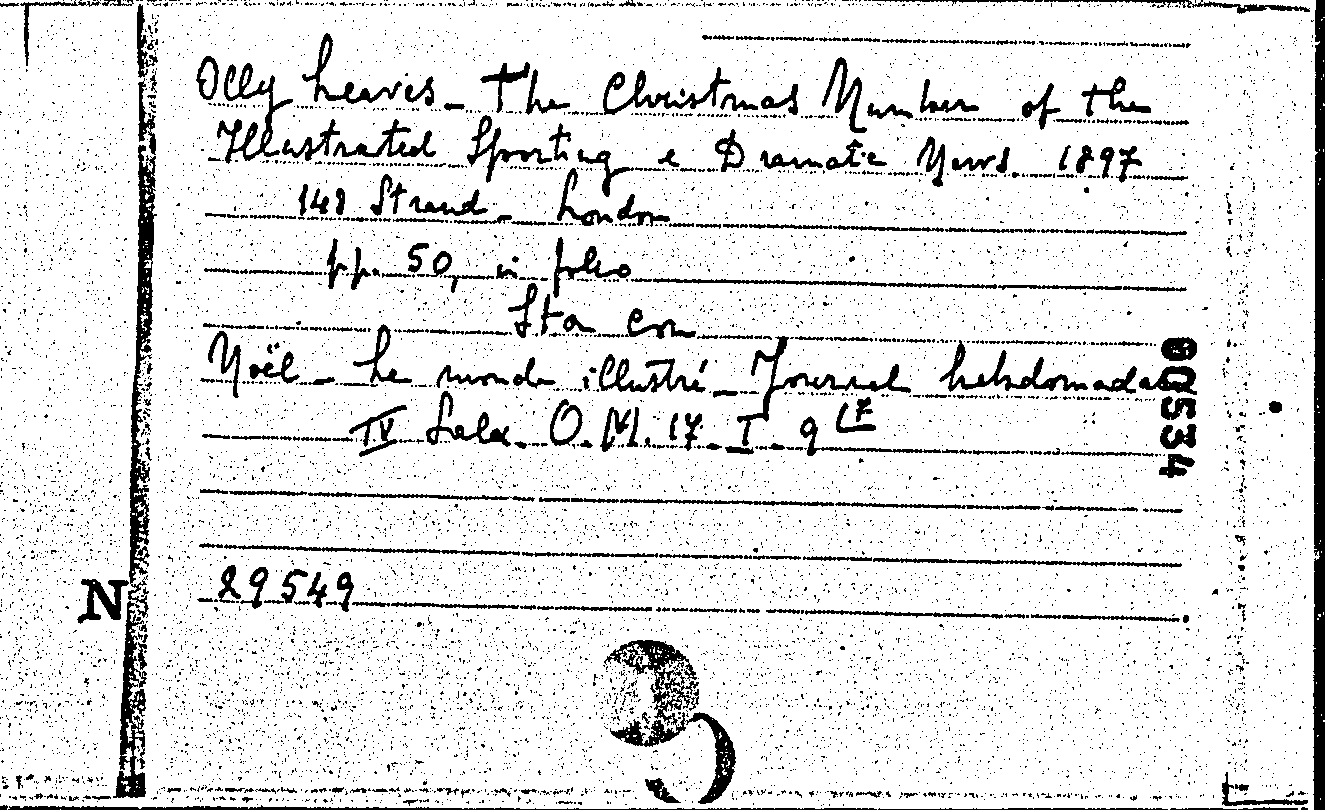 Olly Leaves - The Christmas Number of the
Illustrated Sporting e Dramatic News. 1897
148 Strand - London
pp. 50, in folio
Sta con
Noël - Le monde illustré - Journal hebdomadaire
IV Sala. O. M. 17. I. 9 17
29549
N
00534